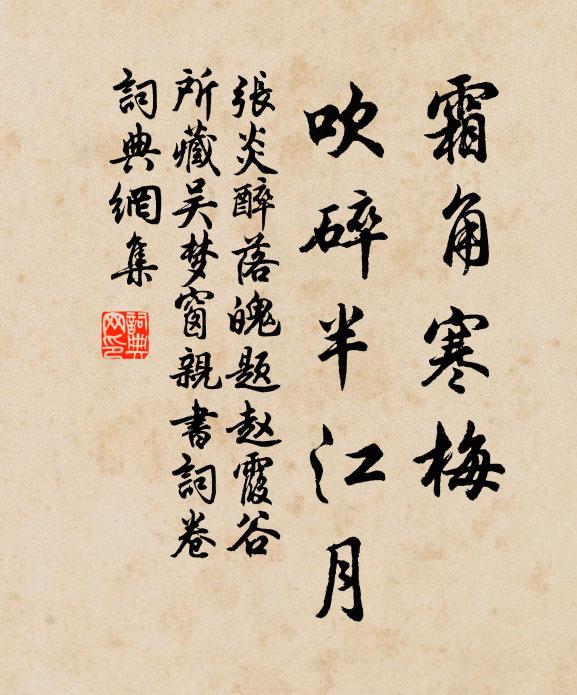 霜角寒梅
吹碎半江月
張炎醉落魄題赵霞谷
所藏吴梦窗親書詞卷
詞典網集
詞典网印